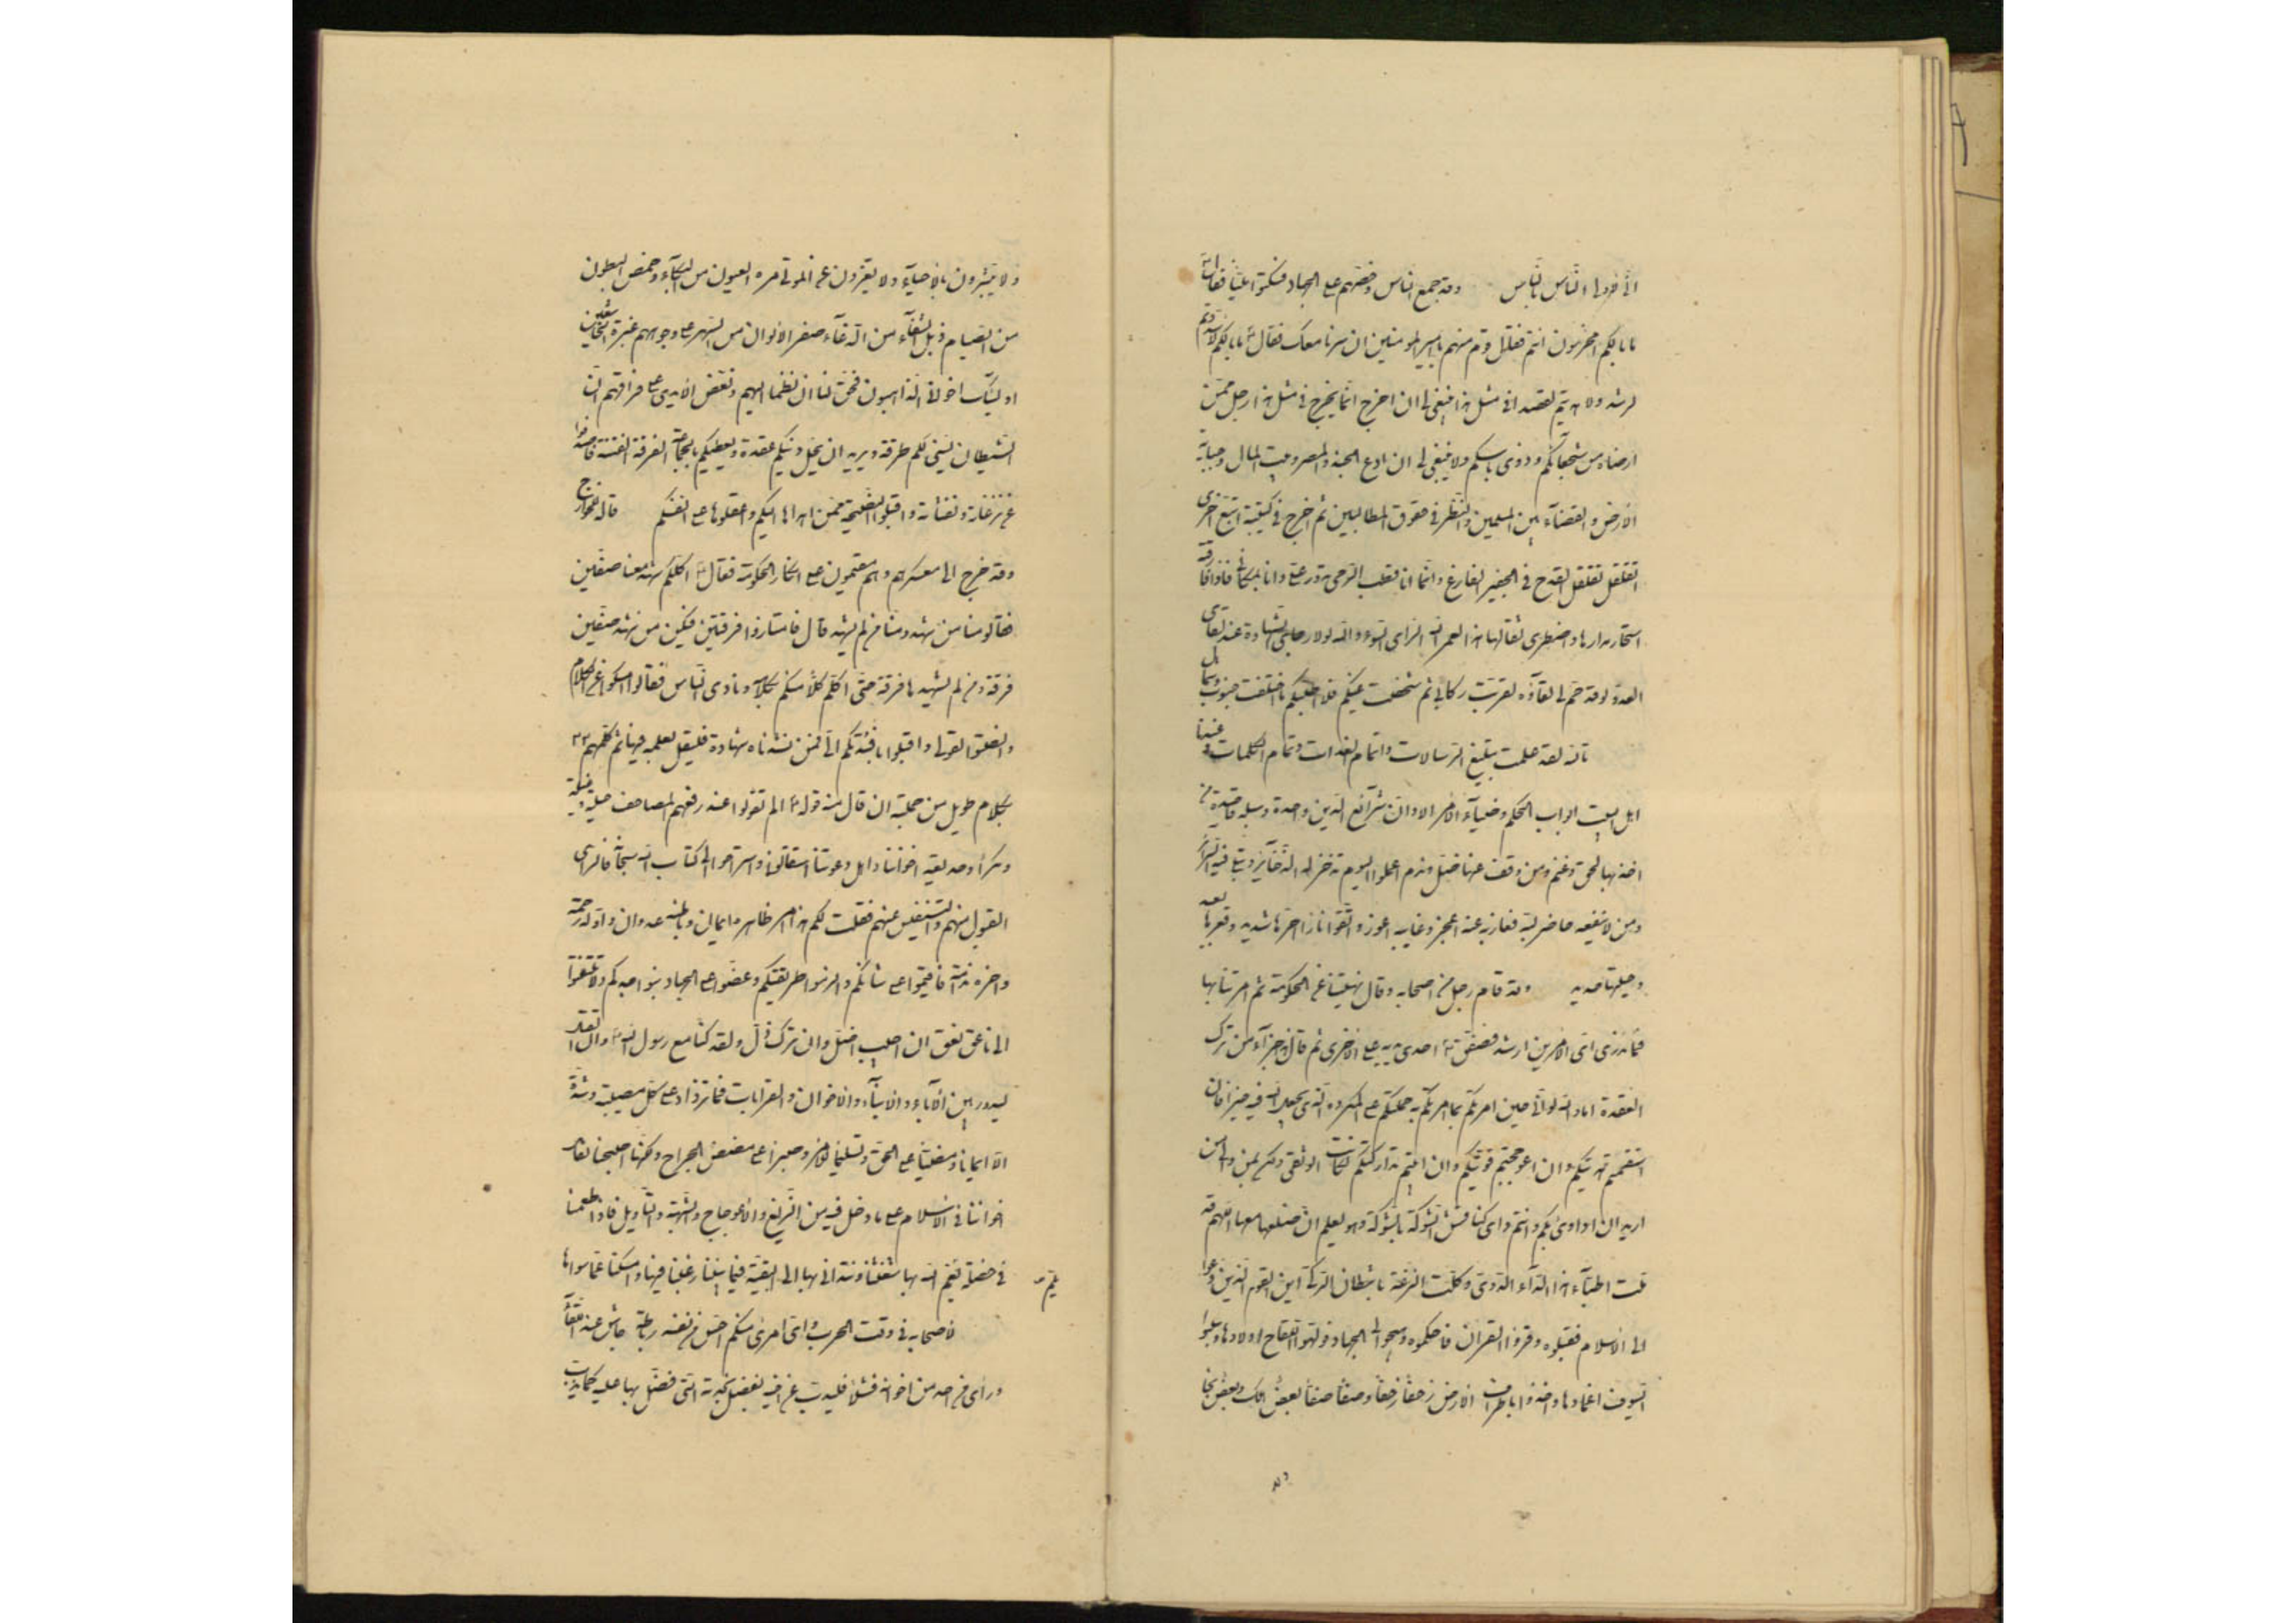 الى فرد او الناس بالناس وقد جمع الناس وحضهم على الجهاد فسكتوا مليا فقال
ما بالكم امخرسون انتم فقال قوم منهم يا امير المومنين ان سرت سرنا معك فقال ما بالكم لا سددتم
لرشد ولا هديتم لقصد افى مثل هذا ينبغى لى ان اخرج انما يخرج فى مثل هذا رجل ممن
ارضاه من شجعانكم و ذوى باسكم ولا ينبغى لى ان ادع الجند والمصر وبيت المال وجباية
الارض والقضآء بين المسلمين والنظر فى حقوق المطالبين ثم اخرج فى كتيبة اتبع اخرى
اتقلقل تقلقل القدح فى الجفير الفارغ وانما انا قطب الرحى تدور على وانا بمكانى فاذا فارقته
استحار مدارها واضطرب ثفالها هذا لعمر الله الراى السوء والله لولا رجايى الشهادة عند لقاى
العدو لو قد حم لى لقآؤه لقربت ركابى ثم شخصت عنكم فلا اطلبكم ما اختلفت جنوب وشمال
تالله لقد علمت تبليغ الرسالات واتمام العدات وتمام الكلمات وعندنا
اهل البيت ابواب الحكم وضيآء الامر الا وان شرآئع الدين واحدة وسبله قاصدة من
اخذ بها لحق وغنم ومن وقف عنها ضل وندم اعملوا ليوم تذخر له الذخآئر وتبلى فيه السرآئر
ومن لا ينفعه حاضر لبه فعازبه عنه اعجز وغايبه اعوز واتقوا نارا حرها شديد وقعرها بعيد
وحليتها حديد وقد قام رجل من اصحابه وقال نهيتنا عن الحكومة ثم امرتنا بها
فما ندرى اى الامرين ارشد فصفق احدى يديه على الاخرى ثم قال هذا جزآء من ترك
العقدة اما والله لو انى حين امرتكم بما امرتكم به حملتكم على المكروه الذى يجعل الله فيه خيرا فان
استقمتم هديتكم وان اعوججتم قومتكم وان ابيتم تداركتكم لكانت الوثقى ولكن بمن والى من
اريد ان اداوى بكم وانتم دائى كناقش الشوكة بالشوكة وهو يعلم ان ضلعها معها اللهم قد
ملت اطبآء هذا الدآء الدوى وكلت النزعة باشطان الركى اين القوم الذين دعوا
الى الاسلام فقبلوه وقرؤا القران فاحكموه وهيجوا الى الجهاد فولهوا اللقاح اولادها وسلبوا
السيوف اغمادها واخذوا باطراف الارض زحفا زحفا وصفا صفا بعض هلك وبعض نجا
لا يبشرون بالاحيآء ولا يعزون عن الموتى مره العيون من البكآء وخمص البطون
من الصيام ذبل الشفآء من الدعآء صفر الالوان من السهر على وجوههم غبرة الخاشعين
اولئك اخوانى الذاهبون فحق لنا ان نظما اليهم ونعض الايدى على فراقهم ان
الشيطان يسنى لكم طرقه ويريد ان يحل دينكم عقدة عقدة ويعطيكم بالجماعة الفرقة الفتنة فاصدفوا
عن نزغاته ونفثاته واقبلوا النصيحة ممن اهداها اليكم واعقلوها على انفسكم قاله للخوارج
وقد خرج الى معسكرهم وهم مقيمون على انكار الحكومة فقال اكلكم شهد معنا صفين
فقالوا منا من شهد ومنا من لم يشهد قال فامتازوا فرقتين فليكن من شهد صفين
فرقة ومن لم يشهدها فرقة حتى اكلم كلا منكم بكلامه ونادى الناس فقال امسكوا عن الكلام
وانصتوا لقولى واقبلوا بافئدتكم الى فمن نشدناه شهادة فليقل بعلمه فيها ثم كلمهم
بكلام طويل من جملته ان قال منه قوله الم تقولوا عند رفعهم المصاحف حيلة وغيلة
ومكرا وخديعة اخواننا واهل دعوتنا استقالونا واستراحوا الى كتاب الله سبحانه فالراى
القبول منهم والتنفيس عنهم فقلت لكم هذا امر ظاهره ايمان وباطنه عدوان واوله رحمة
واخره ندامة فاقيموا على شانكم والزموا طريقتكم وعضوا على الجهاد بنواجذكم ولا تلتفتوا
الى ناعق نعق ان اجيب اضل وان ترك ذل ولقد كنا مع رسول الله وان القتل
ليدور بين الآباء والابنآء والاخوان والقرابات فما نزداد على كل مصيبة وشدة
الا ايمانا ومضيا على الحق وتسليما للامر وصبرا على مضض الجراح ولكنا اصبحنا نقاتل
اخواننا فى الاسلام على ما دخل فيه من الزيغ والاعوجاج والشبهة والتاويل فاذا طمعنا
فى خصلة يلم الله بها شعثنا ونتدانى بها الى البقية فيما بيننا رغبنا فيها وامسكنا عما سواها
يلم
لاصحابه فى وقت الحرب واى امرئ منكم احس من نفسه رباطة جاش عند اللقآء
وراى من احد من اخوانه فشلا فليذب عن اخيه بفضل نجدته التى فضل بها عليه كما يذب